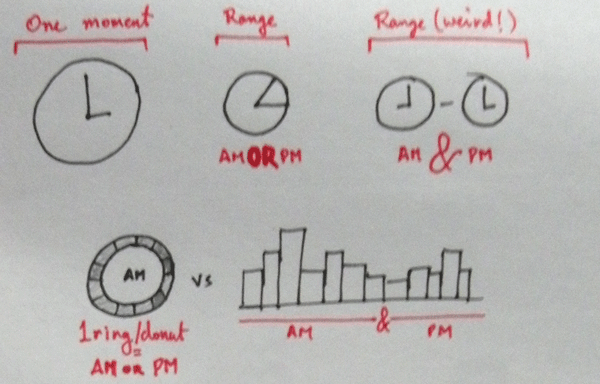 One moment
Range
Range (weird!)
AM OR PM
AM & PM
AM
vs
1 ring/donut
AM OR PM
AM & PM